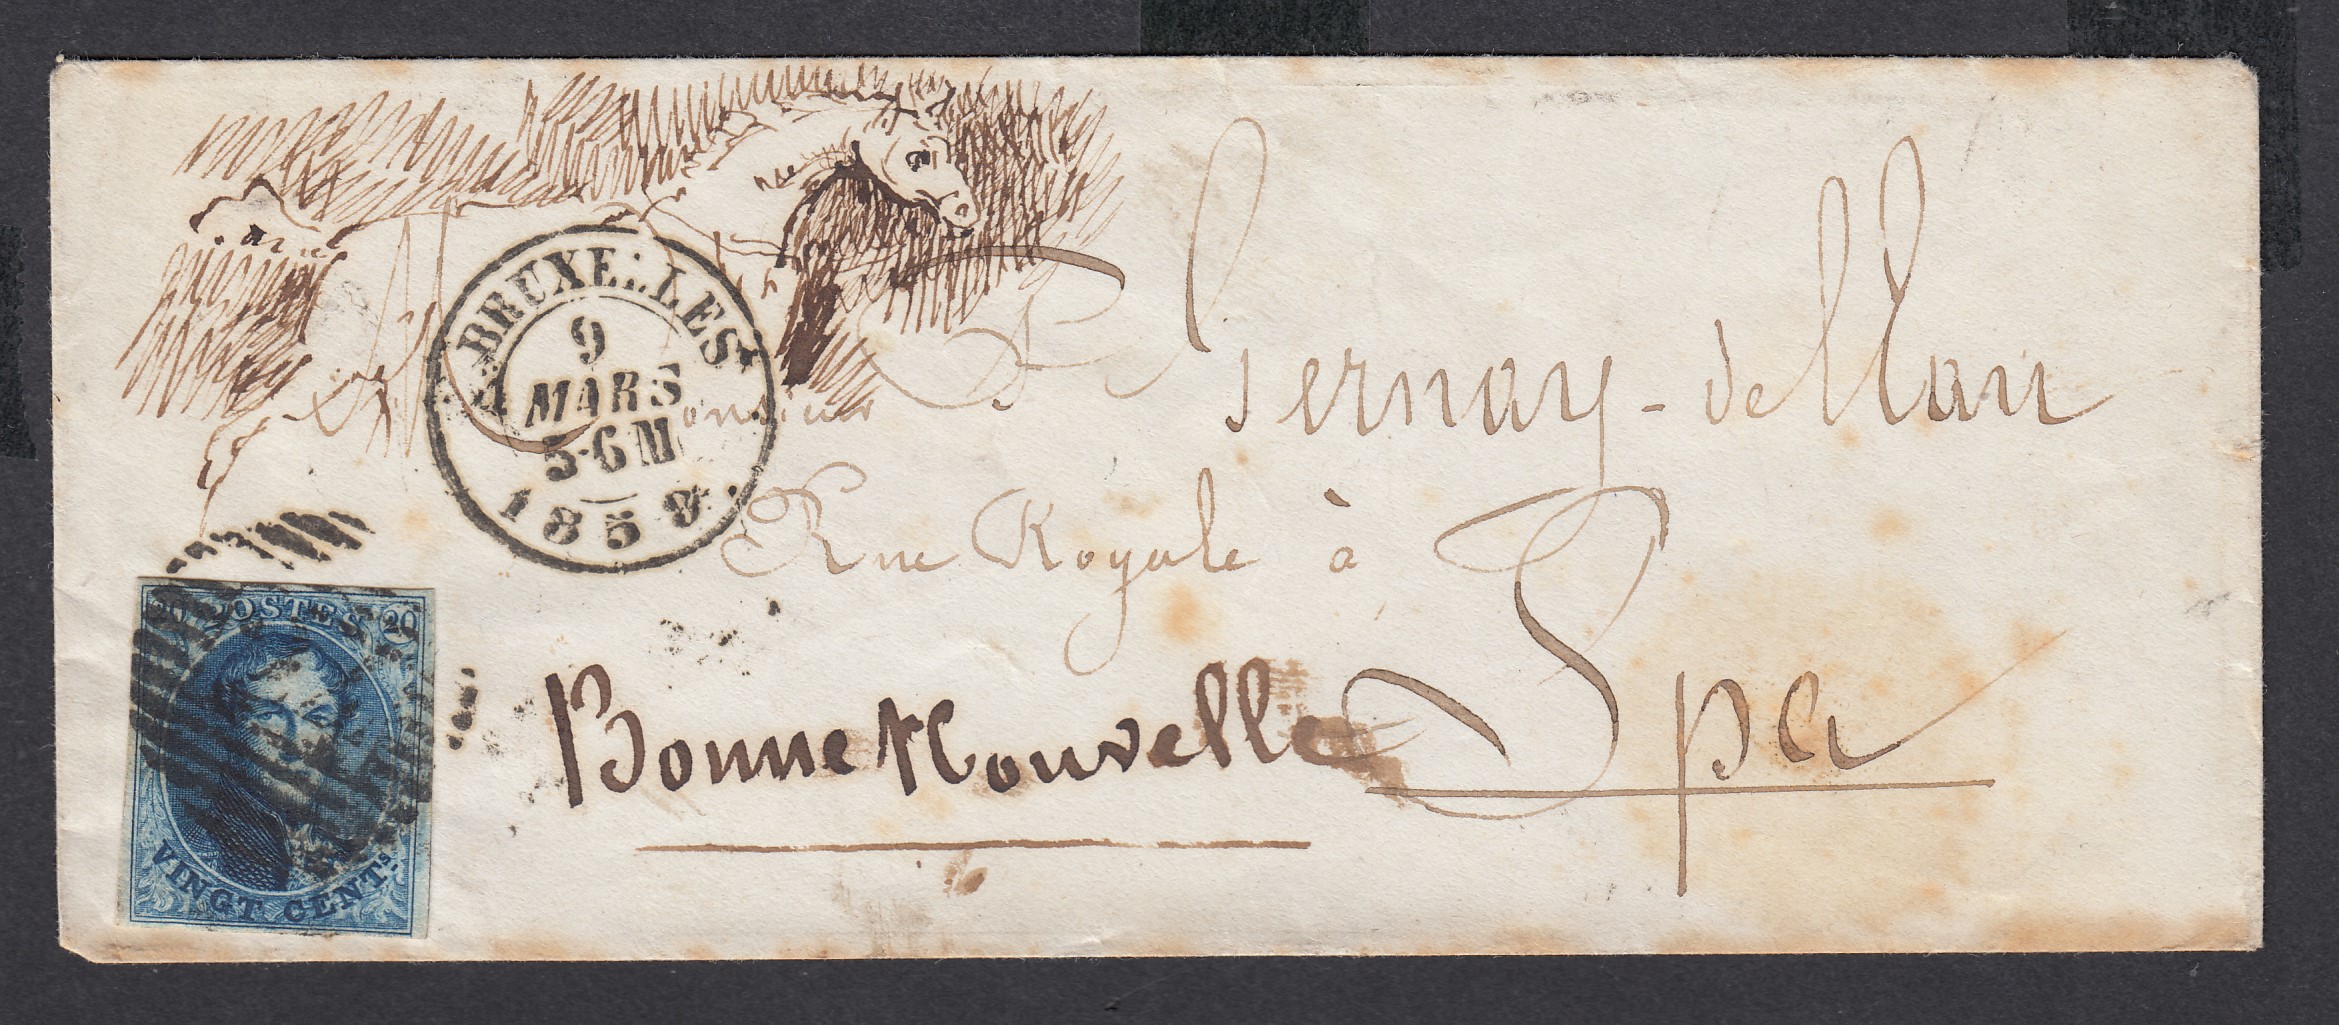 BRUXELLES
9
MARS
5-6 M
185
Monsieur
Rue Royale à
Spa
Bonne Nouvelle
20 POSTES 20
VINGT CENTS.